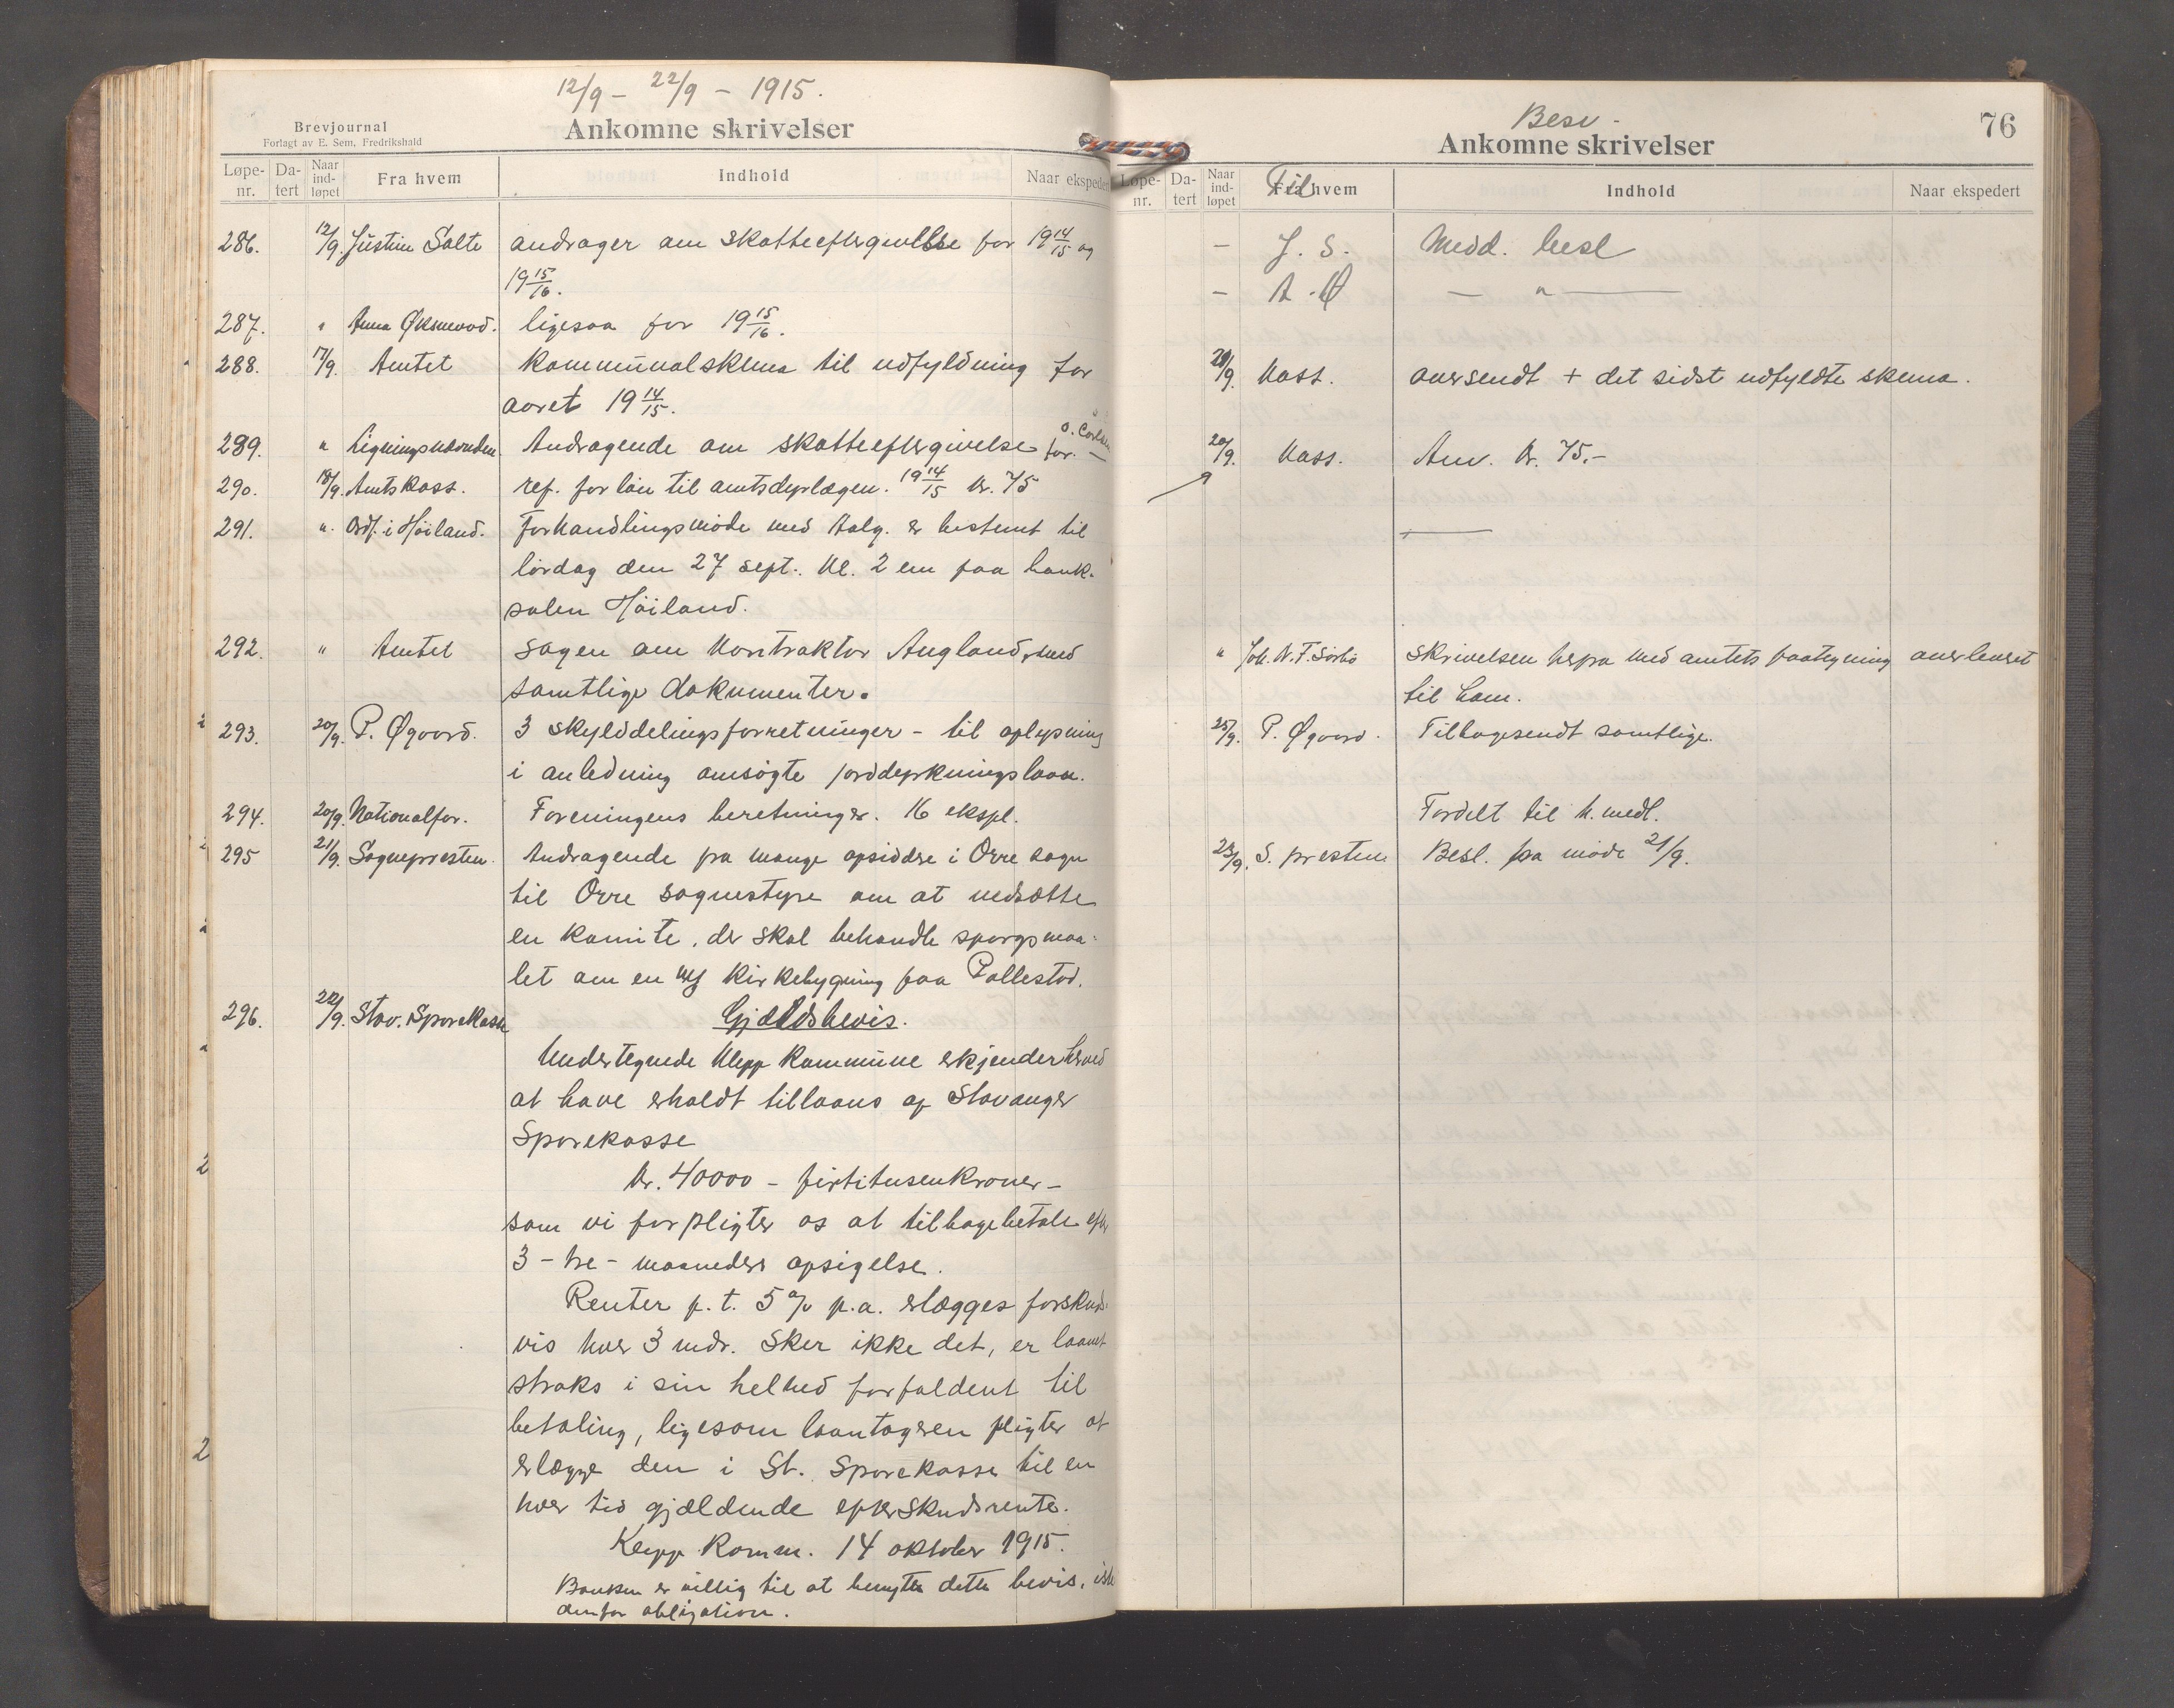 12/9 - 22/9 - 1915.
Brevjournal
Forlagt av E. Sem, Fredrikshald
Ankomne skrivelser
Løpe-nr. Da-tert Naar ind-løpet Fra hvem Indhold Naar ekspedert
286. 12/9. Justine Salte andrager om skatteeftergivelse for 19 14/15 og
19 15/16.
287. " Anna Øksnevad. ligesaa for 19 15/16.
288. 17/9. Amtet Kommunalskema til udfyldning for
aaret 19 14/15.
289. " Ligningsnævnden Andragende om skatteeftergivelse for O.
290. 18/9. Amtskass. ref. for løn til amtsdyrlægen. 19 14/15 kr. 75
291. ". Ordf. i Høiland. Forhandlingsmøde med Aalg. er bestemt til
lørdag den 27 sept. kl. 2 em paa bank-
salen Høiland.
292. " Amtet Sagen om Kontraktor Augland, med
samtlige dokumenter.
293. 20/9. P. Øgaard. 3 skylddelingsforretninger - til oplysning
i anledning ansøgte jorddyrkningslaan.
294. 20/9. Nationalfor. Foreningens beretninger. 16 ekspl.
295 21/9. Sognepresten. Andragende fra mange opsiddere i Orre sogn
til Orre sognestyre om at nedsætte
en komite, der skal behandle spørgsmaa-
let om en ny kirkebygning paa Pollestad.
296. 22/9. Stav. Sparekasse Gjældsbevis.
Undertegnede Klepp kommune erkjender herved
at have erholdt tillaans af Stavanger
Sparekasse
kr. 40000 - firtitusenkroner -
som vi forpligter os at tilbagebetale efter
3 - tre - maaneders opsigelse.
Renter p. t. 5 % p.a. erlægges forskuds-
vis hver 3 mdr. Sker ikke det, er laanet
straks i sin helhed forfaldent til
betaling, ligesom laantageren pligter at
erlægge den i St. Sparekasse til en
hver tid gjældende efterskudsrente.
Klepp komm. 14 oktober 1915.
Banken er villig til at benytte dette bevis, istе
denfor obligation.
Besv.
Ankomne skrivelser
76
Løpe-nr. Da-tert Naar ind-løpet Fra hvem Til Indhold Naar ekspedert
- J. S. Medd. besl
- A. Ø — " —
29/9. Kass. oversendt + det sidst udfyldte skema.
20/9. Kass. Anv. kr. 75.-
" Joh. N. T. Sørbø skrivelsen herfra med amtets paategning overlevert
til ham.
25/9. P. Øgaard. Tilbagesendt samtlige.
Fordelt til h. medl.
23/9. S. presten Besl. fra møde 21/9.